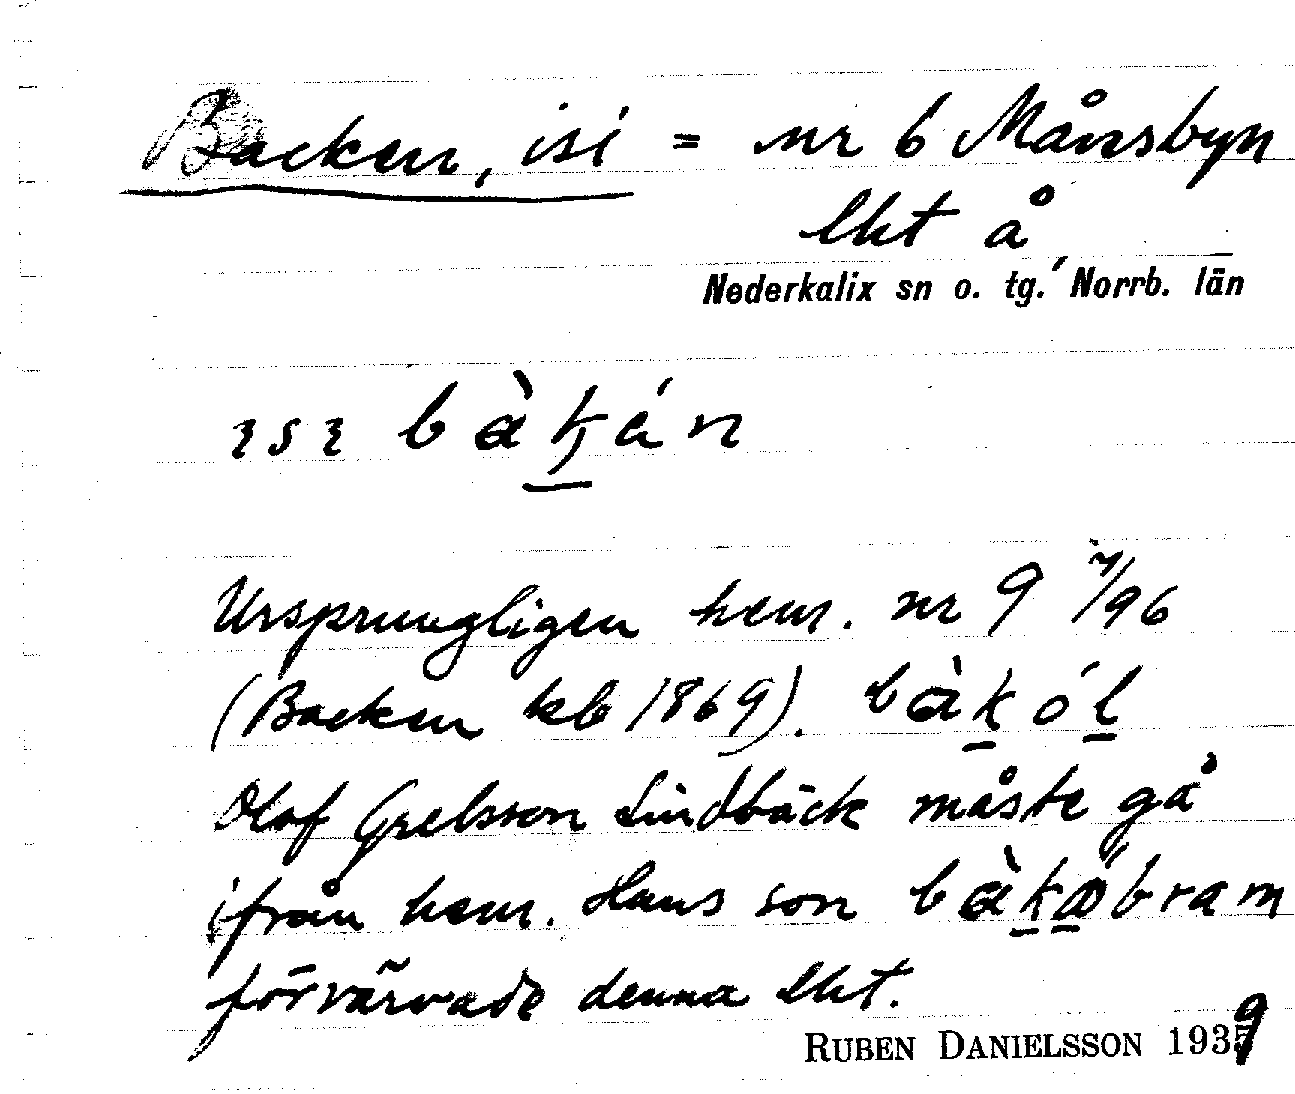 Backen, isi = nr 6 Månsbyn
lht å
Nederkalix sn o. tg. Norrb. län
ɩsɩ bàꞣán
Ursprungligen hem. nr 9 7/96
(Backen kb 1869). bàkól
Olof Grelsson Lindbäck måste gå
ifrån hem. Hans son bàkabram
förvärvade denna lht.
RUBEN DANIELSSON 1939